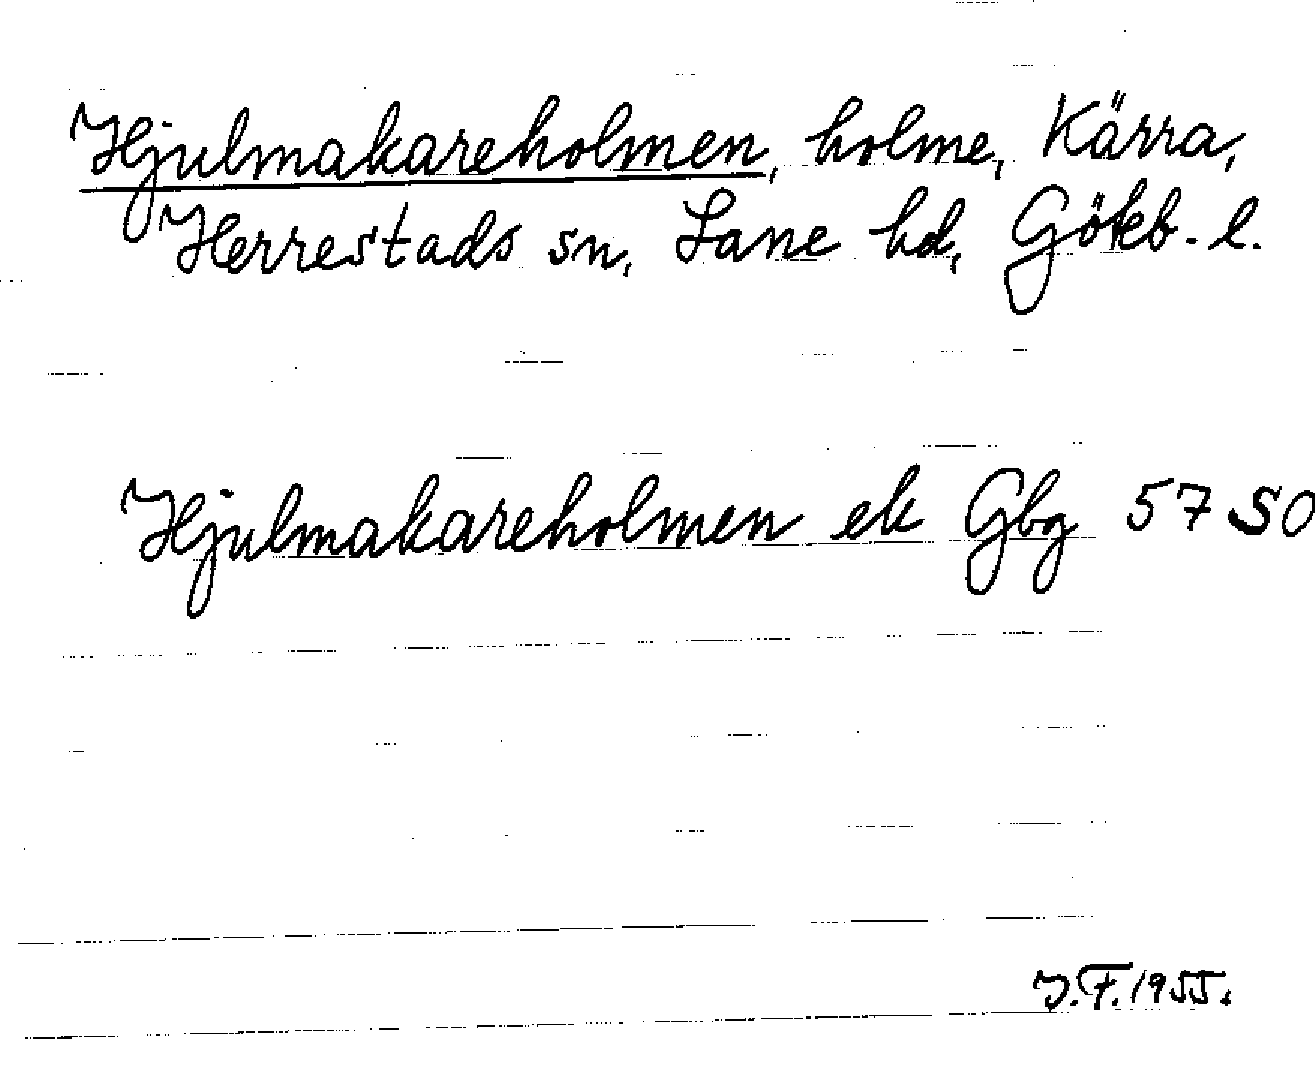 Hjulmakareholmen, holme, Kärra,
Herrestads sn, Lane hd, Göteb. l.
Hjulmakareholmen ek Gbg 57 SO
J.F. 1955.